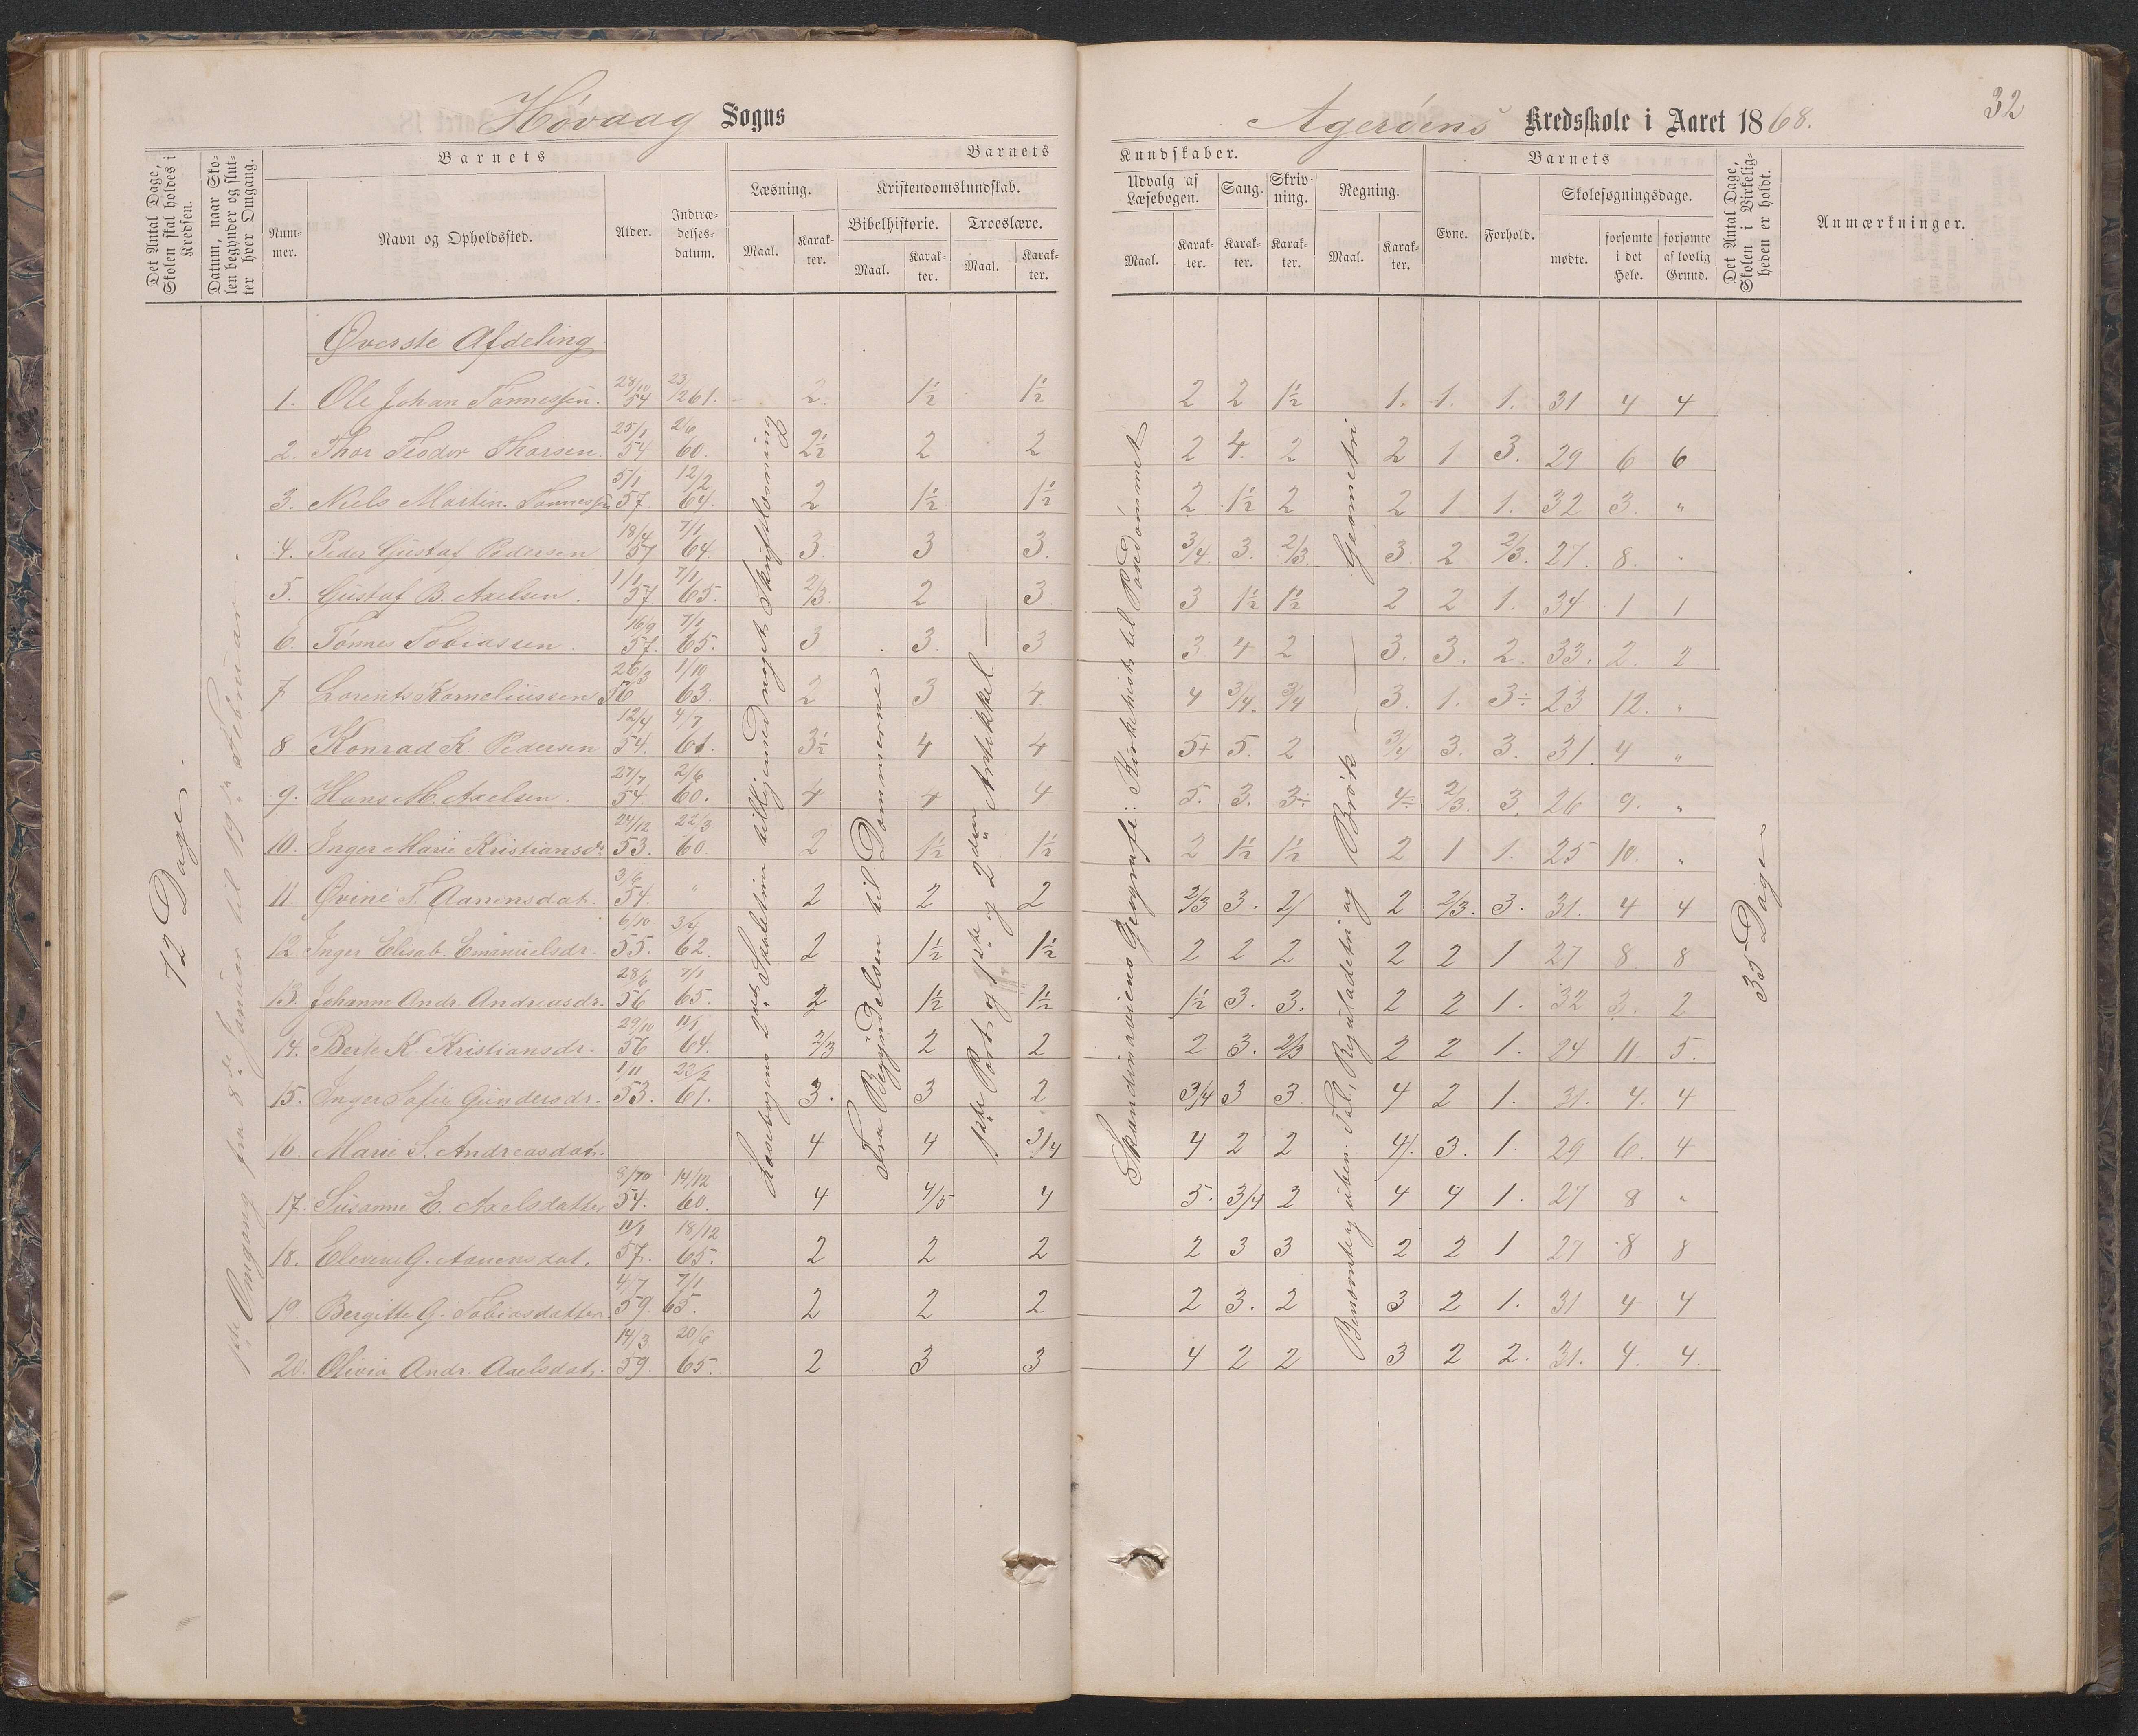 Høvaag Sogns
Agerøens Kredsskole i Aaret 1868.
32
Det Antal Dage, Skolen skal holdes i Kredsen.
Datum, naar Skolen begynder og slutter hver Omgang.
Barnets
Nummer.
Navn og Opholdssted.
Alder.
Indtrædelsesdatum.
Barnets
Læsning.
Maal.
Karakter.
Kristendomskundskab.
Bibelhistorie.
Maal.
Karakter.
Troeslære.
Maal.
Karakter.
Kundskaber.
Udvalg af Læsebogen.
Maal.
Karakter.
Sang.
Karakter.
Skrivning.
Karakter.
Regning.
Maal.
Karakter.
Barnets
Evne.
Forhold.
Skolesøgningsdage.
mødte.
forsømte i det Hele.
forsømte af lovlig Grund.
Det Antal Dage, Skolen i Virkeligheden er holdt.
Anmærkninger.
72 Dage.
1ste Omgang fra 8de Januar til 19de Februar.
Øverste Afdeling
Læsebogens 2det Skoletrin tilligemed noget Skriftlæsning
Fra Begyndelsen til Dommerne
1ste Part og 1ste og 2den Artikkel
Skandinaviens Geografi: Kirkehist. til Pavedømmet
Benævnte og uben. Tal, Reguladetri og Brøk — Geometri
35 Dage
1. Ole Johan Tønnessen. 28/10 54 23/12 61. 2. 1½ 1½ 2 2 1½ 1. 1. 1. 31 4 4
2. Thor Teodor Thorsen. 25/1 54 2/6 60. 2½ 2 2 2 4. 2 2 1 3. 29 6 6
3. Niels Martin. Tønnessen 5/1 57. 12/2 64. 2 1½ 1½ 2 1½ 2 2 1 1. 32 3. "
4. Peder Gustaf Pedersen 18/4 57 7/1 64. 3. 3 3. 3/4. 3. 2/3. 3. 2 2/3. 27. 8. "
5. Gustaf B. Axelsen. 1/1 57. 7/1 65. 2/3. 2 3 3 1½ 1½ 2 2 1. 34 1 1
6. Tønnes Tobiassen. 16/9 57. 7/1 65. 3 3. 3 3 4 2 3. 3. 2. 33. 2. 2
7 Lorents Korneliussen 26/3 56 1/10 63. 2 3 4. 4 3/4. 3/4 3. 1. 3÷ 23 12. "
8. Konrad K. Pedersen 12/4 54. 4/7 61. 3½ 4 4 5+ 5. 2 3/4 3. 3. 31. 4 "
9. Hans M. Axelsen. 27/7 54. 2/6 60. 4 4 4 5. 3. 3÷ 4÷ 2/3. 3. 26 9. "
10. Inger Marie Kristiansdr. 24/12 53. 22/3 60. 2 1½ 1½ 2 1½ 1½ 2 1 1. 25 10. "
11. Øvine T. Aanensdat. 3/6 54. " 2 2 2 2/3 3. 2/ 2 2/3. 3. 31. 4 4
12. Inger Elisab. Emanuelsdr. 6/10 55. 3/4 62. 2 1½ 1½ 2 2 2 2 2 1 27 8 8
13. Johanne Andr. Andreasdr. 28/6 56 7/1 65. 2 1½ 1½ 1½ 3. 3. 2 2 1. 32 3. 2
14. Berte K. Kristiansdr. 29/10 56 11/1 64. 2/3 2 2 2 3. 2/3 2 2 1. 24 11. 5.
15. Inger Sofie Gundersdr. 1/11 53. 22/2 61. 3. 3 2 3/4 3 3. 4 2 1. 31. 4. 4
16. Marie S. Andreasdatr. 4 4 3/4 4 2 2 4/. 3. 1. 29 6. 4
17. Susanne E. Axelsdatter 8/10 54. 14/12 60. 4 4/5 4 5. 3/4 2 4 4 1. 27 8 "
18. Elevine G. Aanensdat. 11/1 57. 18/12 65. 2 2 2 2 3 3 2 2 1 27 8 8
19. Bergitte G. Tobiasdatter. 4/7 59. 7/1 65. 2 2 2 2 3. 2 3 2 1. 31 4 4
20. Olivia Andr. Axelsdatr. 14/3 59. 20/6 65. 2 3 3 4 2 2 3 2 2. 31. 4. 4.